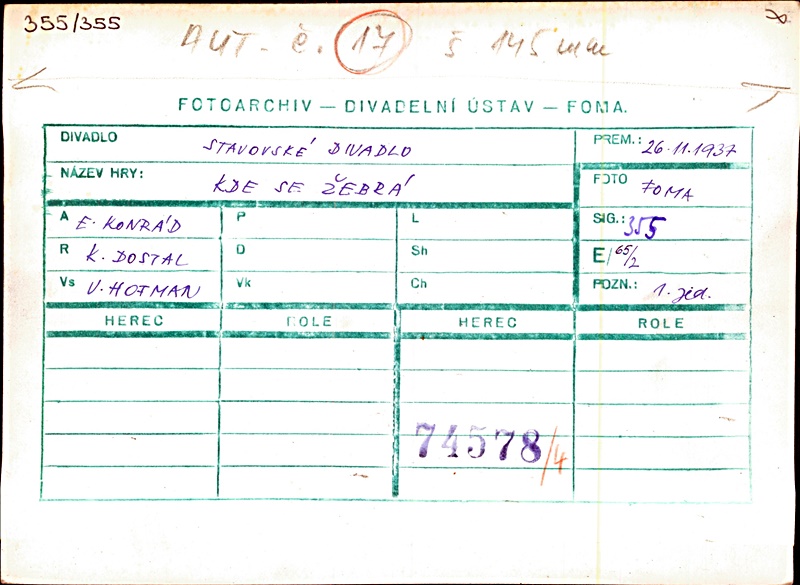 355/355
AUT - č. 17 š 145 mm
FOTOARCHIV — DIVADELNÍ ÚSTAV — FOMA.
DIVADLO STAVOVSKÉ DIVADLO PREM.: 26.11.1937
NÁZEV HRY: KDE SE ŽEBRÁ FOTO FOMA
A E. KONRÁD P L SIG.: 355
R K. DOSTAL D Sh E/65/2
Vs V. HOFMAN Vk Ch POZN.: 1. jed.
HEREC ROLE HEREC ROLE
74578/4